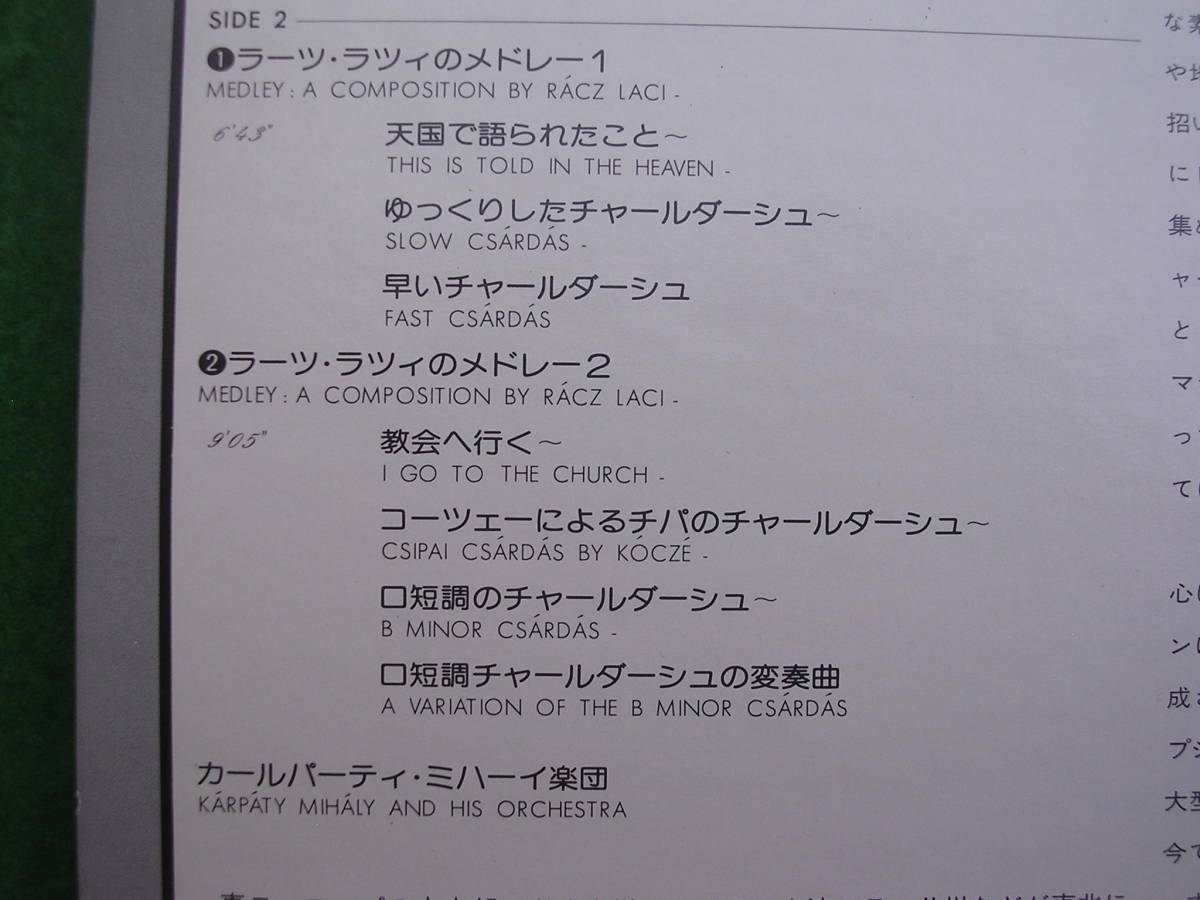 SIDE 2
❶ラーツ・ラツィのメドレー1
MEDLEY : A COMPOSITION BY RÁCZ LACI -
6'43"
天国で語られたこと～
THIS IS TOLD IN THE HEAVEN -
ゆっくりしたチャールダーシュ～
SLOW CSÁRDÁS -
早いチャールダーシュ
FAST CSÁRDÁS
❷ラーツ・ラツィのメドレー2
MEDLEY : A COMPOSITION BY RÁCZ LACI -
9'05"
教会へ行く～
I GO TO THE CHURCH -
コーツェーによるチパのチャールダーシュ～
CSIPAI CSÁRDÁS BY KÓCZÉ -
ロ短調のチャールダーシュ～
B MINOR CSÁRDÁS -
ロ短調チャールダーシュの変奏曲
A VARIATION OF THE B MINOR CSÁRDÁS
カールパーティ・ミハーイ楽団
KÁRPÁTY MIHÁLY AND HIS ORCHESTRA
や
招い
に
集め
と
マ
っ
て
心に
ン
成
プ
大型
今で